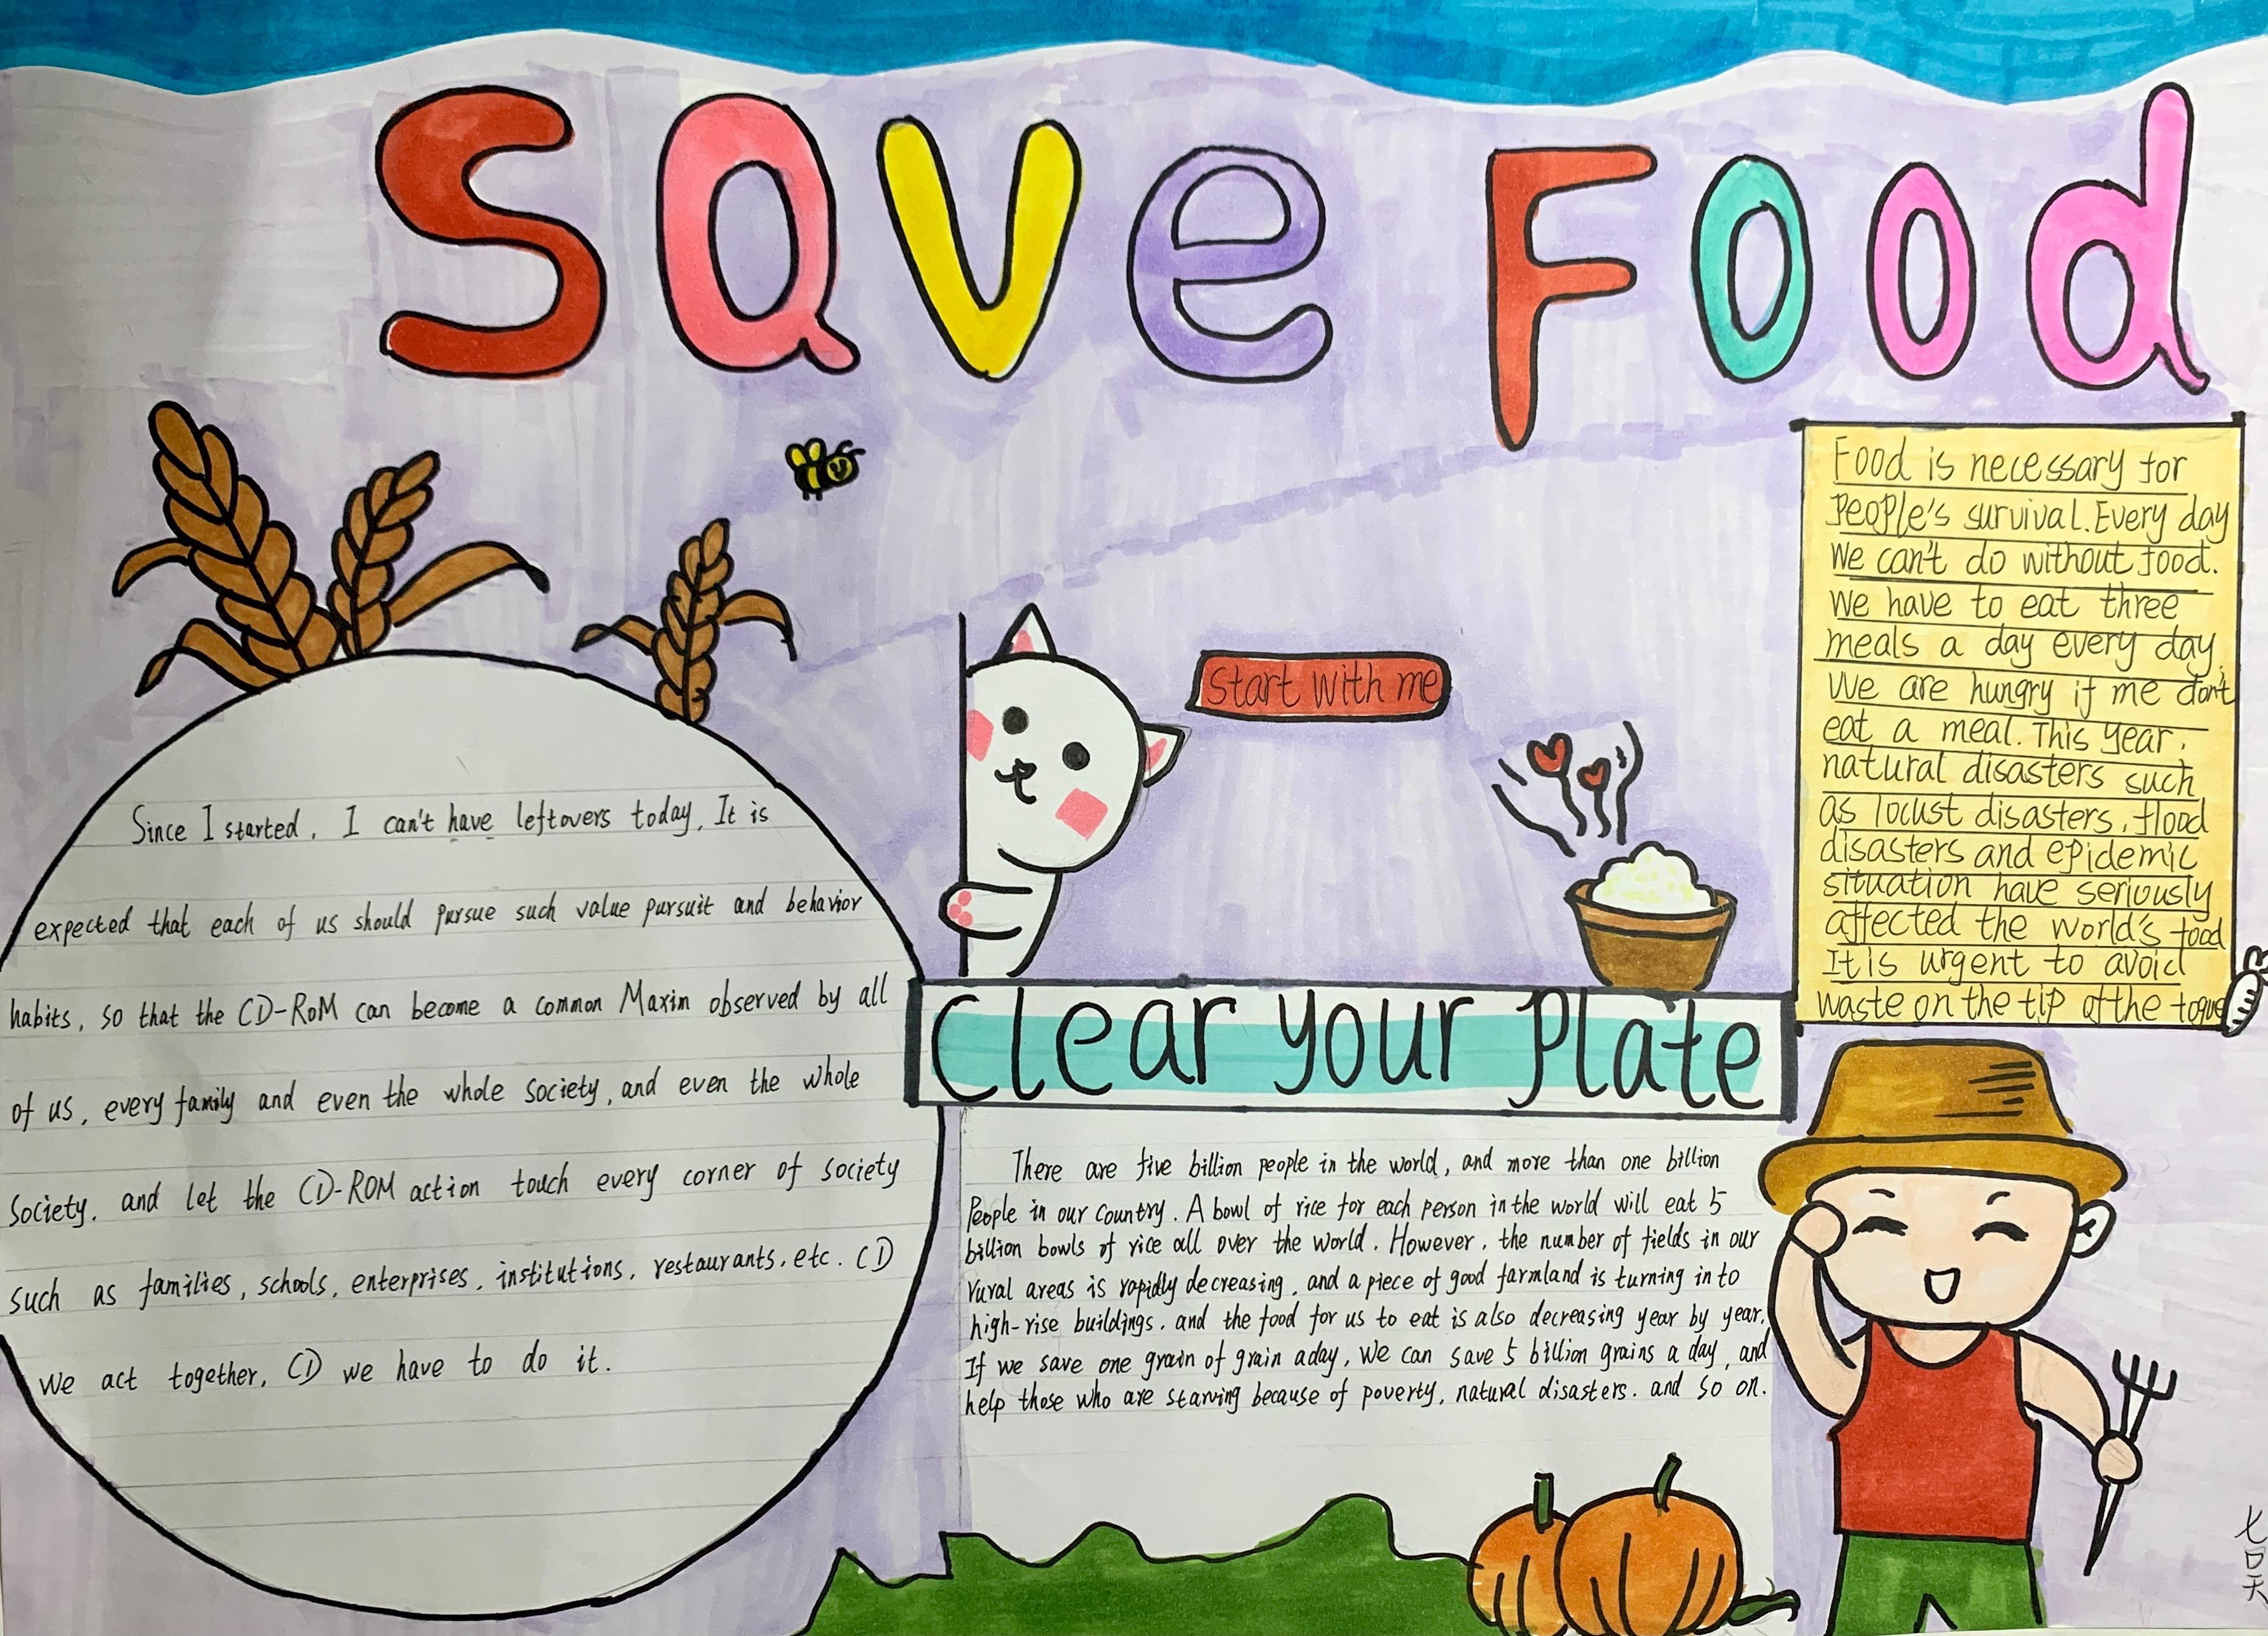 Save Food
Since I started, I can't have leftovers today, It is
expected that each of us should pursue such value pursuit and behavior
habits, so that the CD-ROM can become a common Maxim observed by all
of us, every family and even the whole society, and even the whole
society, and let the CD-ROM action touch every corner of society
such as families, schools, enterprises, institutions, restaurants, etc. CD
we act together, CD we have to do it.
Start with me
Clear your plate
There are five billion people in the world, and more than one billion
People in our country. A bowl of rice for each person in the world will eat 5
billion bowls of rice all over the world. However, the number of fields in our
rural areas is rapidly decreasing, and a piece of good farmland is turning in to
high-rise buildings, and the food for us to eat is also decreasing year by year.
If we save one grain of grain a day, we can save 5 billion grains a day, and
help those who are starving because of poverty, natural disasters. and so on.
Food is necessary for
People's survival. Every day
we can't do without food.
we have to eat three
meals a day every day.
We are hungry if me don't
eat a meal. This year,
natural disasters such
as locust disasters, flood
disasters and epidemic
situation have seriously
affected the world's food
It is urgent to avoid
waste on the tip of the togue